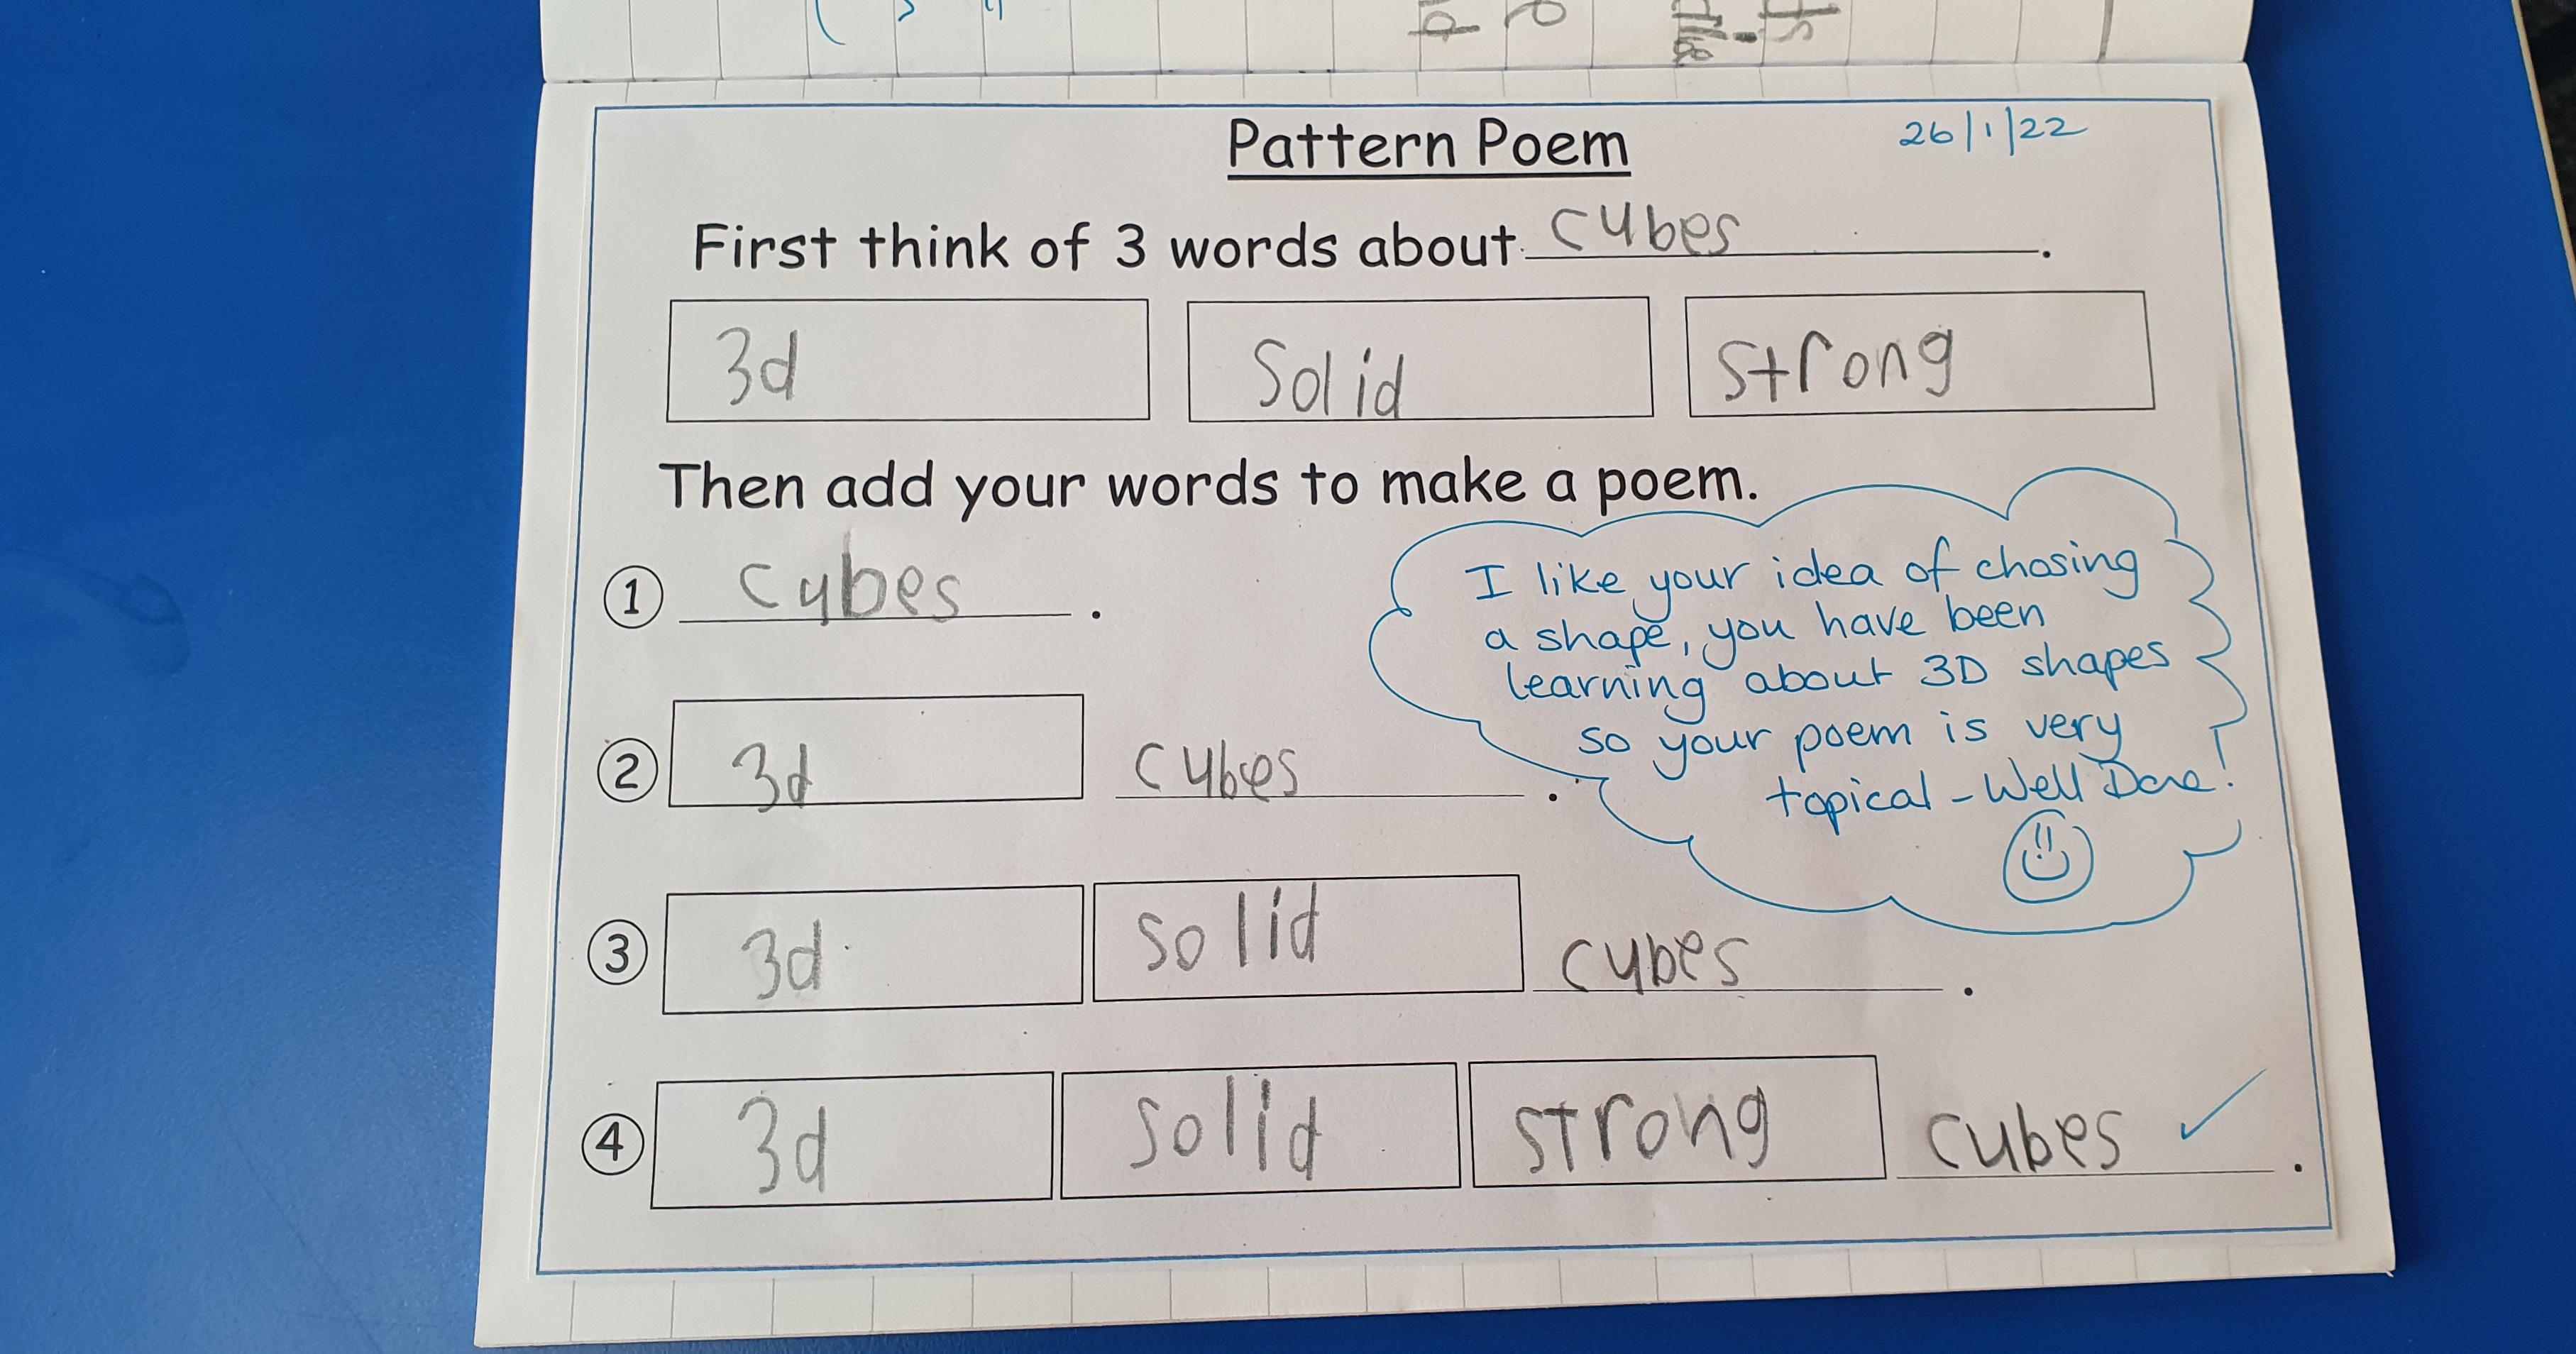 Pattern Poem 26/1/22
First think of 3 words about cubes.
3d Solid strong
Then add your words to make a poem.
1 cubes.
I like your idea of chosing
a shape, you have been
learning about 3D shapes
so your poem is very
topical - Well Done!
2 3d cubes.
3 3d solid cubes.
4 3d solid strong cubes.